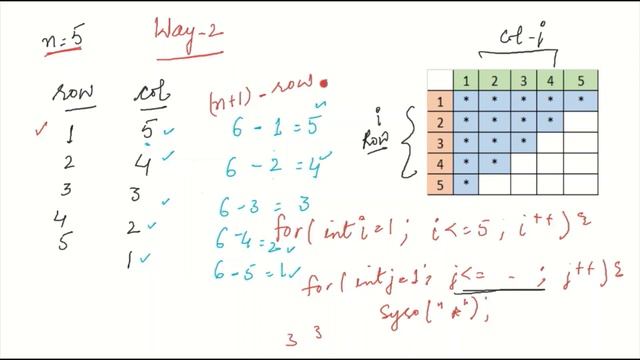 n=5
Way-2
row col
1 5
2 4
3 3
4 2
5 1
(n+1) - row
6 - 1 = 5
6 - 2 = 4
6 - 3 = 3
6 - 4 = 2
6 - 5 = 1
col - j
i
Row
1 2 3 4 5
1 * * * * *
2 * * * *
3 * * *
4 * *
5 *
for( int i=1 ; i<=5 ; i++) {
for( int j=1 ; j<= - ; j++) {
Syso("*");
3 3